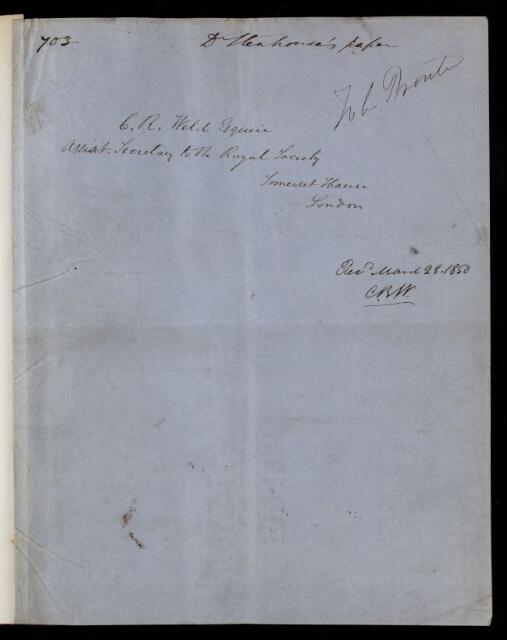 703
Dr Stenhouse's paper
To be Printed
C. R. Weld Esquire
Assist. Secretary to the Royal Society
Somerset House
London
Recd March 28. 1850
C.R.W.